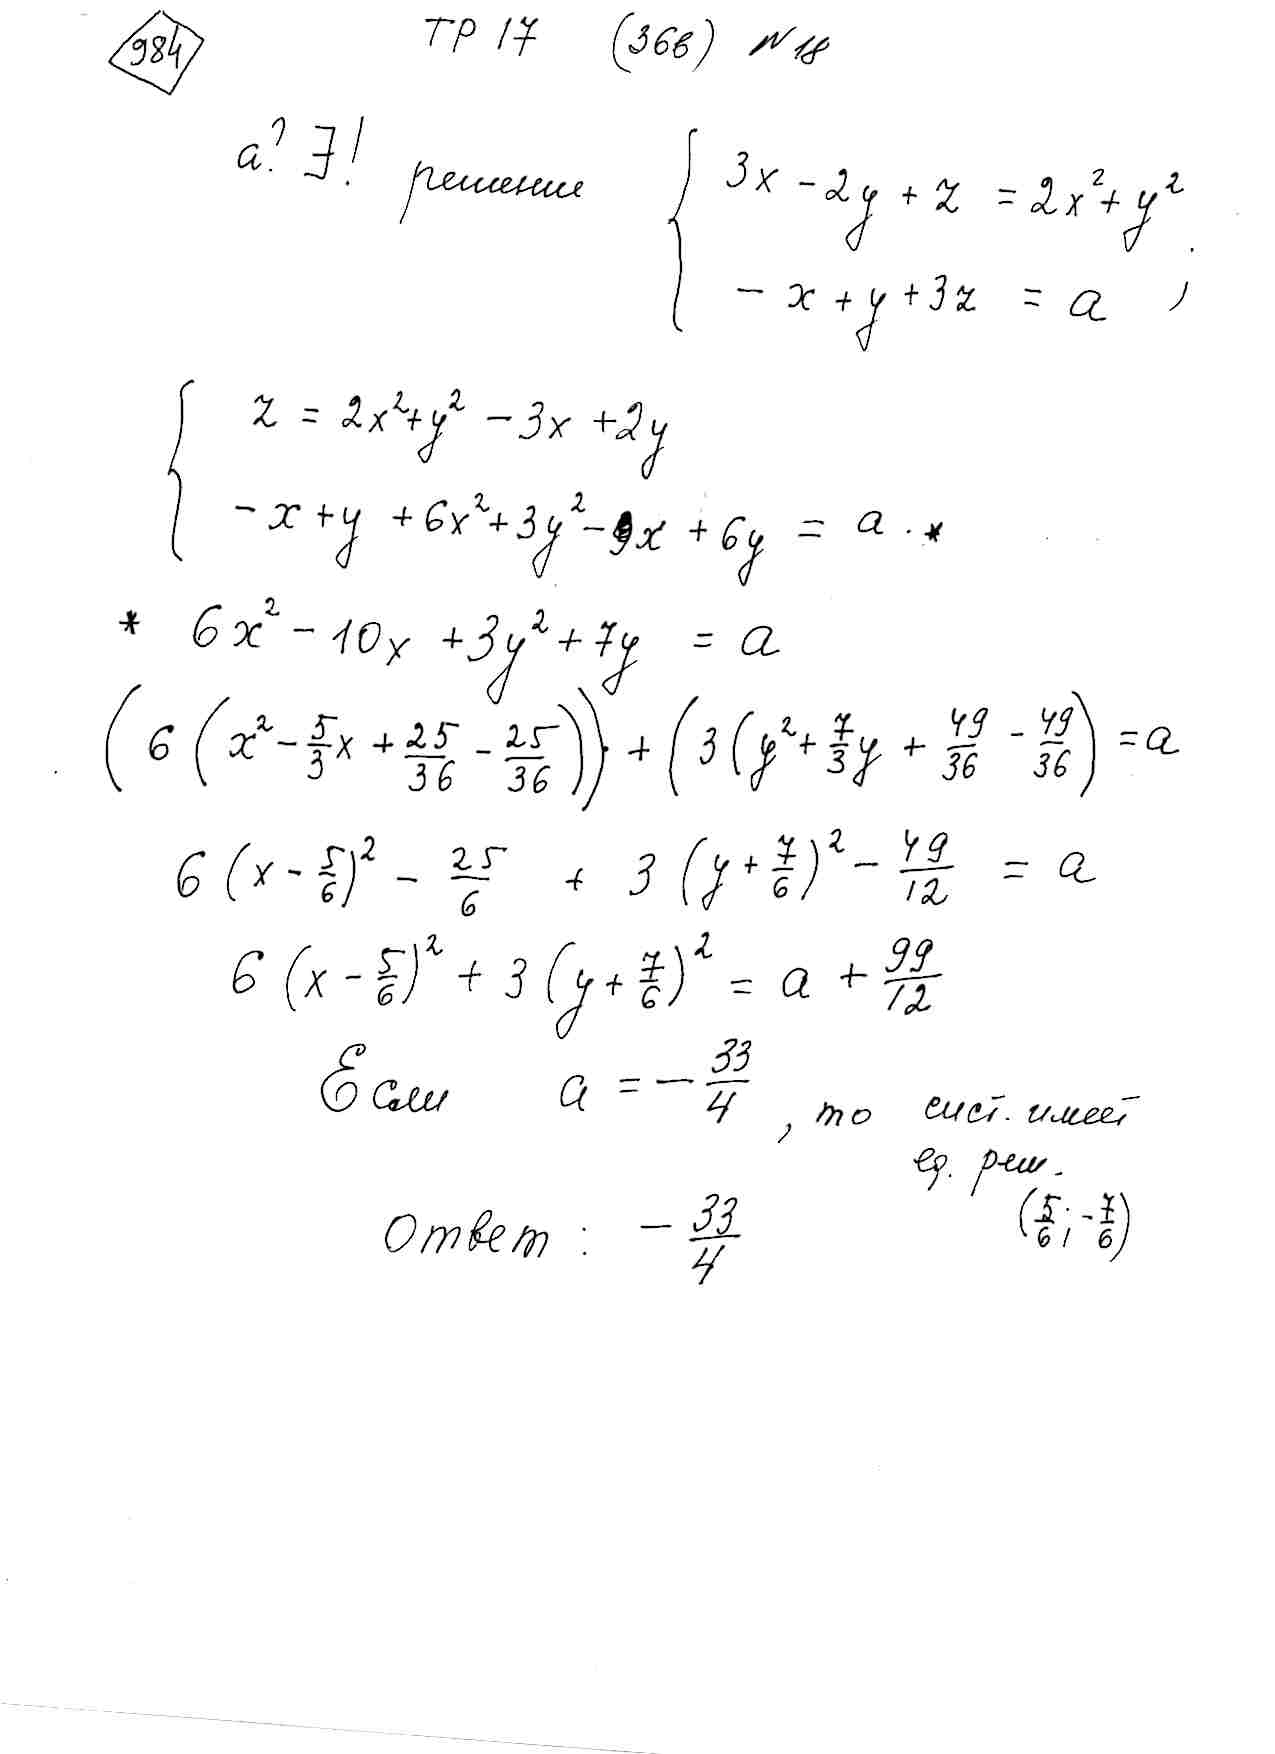 984
ТР 17 (36в) N 18
a? ∃! решение { 3x - 2y + z = 2x² + y²
- x + y + 3z = a ;
{ z = 2x² + y² - 3x + 2y
- x + y + 6x² + 3y² - 9x + 6y = a . *
* 6x² - 10x + 3y² + 7y = a
(6(x² - 5/3 x + 25/36 - 25/36)) + (3(y² + 7/3 y + 49/36 - 49/36) = a
6(x - 5/6)² - 25/6 + 3(y + 7/6)² - 49/12 = a
6(x - 5/6)² + 3(y + 7/6)² = a + 99/12
Если a = - 33/4 , то сист. имеет
ед. реш.
(5/6 ; - 7/6)
Ответ : - 33/4